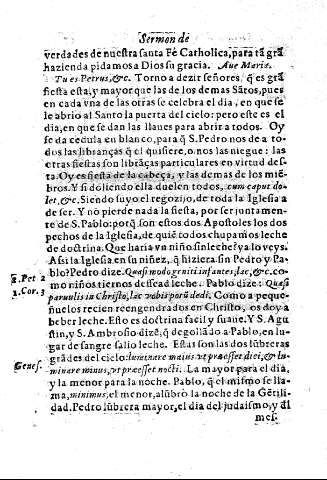 Sermon de
verdades de nuestra santa Fé Catholica, para tã grã
hazienda pidamos a Dios su gracia. Aue Maria.
Tu es Petrus, &c. Torno a dezir señores, q̃ es grã
fiesta esta, y mayor que las de los demas Sãtos, pues
en cada vna de las otras se celebra el dia, en que se
le abrio al Santo la puerta del cielo: pero este es el
dia, en que se dan las llaues para abrir a todos. Oy
se da cedula en blanco, para q̃ S. Pedro nos de a to-
dos las librançás q̃ el quisiere, o nos las niegue: las
otras fiestas son librãças particulares en virtud des-
ta. Oy es fiesta de la cabeça, y las demas de los miẽ-
bros. Y si doliendo ella duelen todos, cum caput do-
let, &c. Siendo suyo el regozijo, de toda la Iglesia a
de ser. Y no pierde nada la fiesta, por ser juntamen-
te de S. Pablo: porq̃ son estos dos Apostoles los dos
pechos de la Iglesia, de quiẽ todos chupamos leche
de doctrina. Que haria vn niño sin leche? ya lo veys.
Assi la Iglesia en su niñez, q̃ hiziera sin Pedro y Pa-
blo? Pedro dize. Quasi modo geniti infantes, lac, &c. co-
1. Pet. 2
mo niños tiernos dessead leche. Pablo dize: Quasi
1. Cor. 3
paruulis in Christo, lac vobis potũ dedi. Como a peque-
ñuelos recien reengendrados en Christo, os doy a
beber leche. Esto es doctrina facil y suaue. Y S. Agu-
stin, y S. Ambrosio dizẽ, q̃ degollãdo a Pablo, en lu-
gar de sangre salio leche. Estas son las dos lũbreras
grãdes del cielo: luminare maius vt præesset diei, & lu-
Genes.
minare minus, vt præesset nocti. La mayor para el dia,
y la menor para la noche. Pablo, q̃ el mismo se lla-
ma, minimus, el menor, alũbrò la noche de la Gẽtili-
dad. Pedro lũbrera mayor, el dia del judaismo, y ãl
mes.